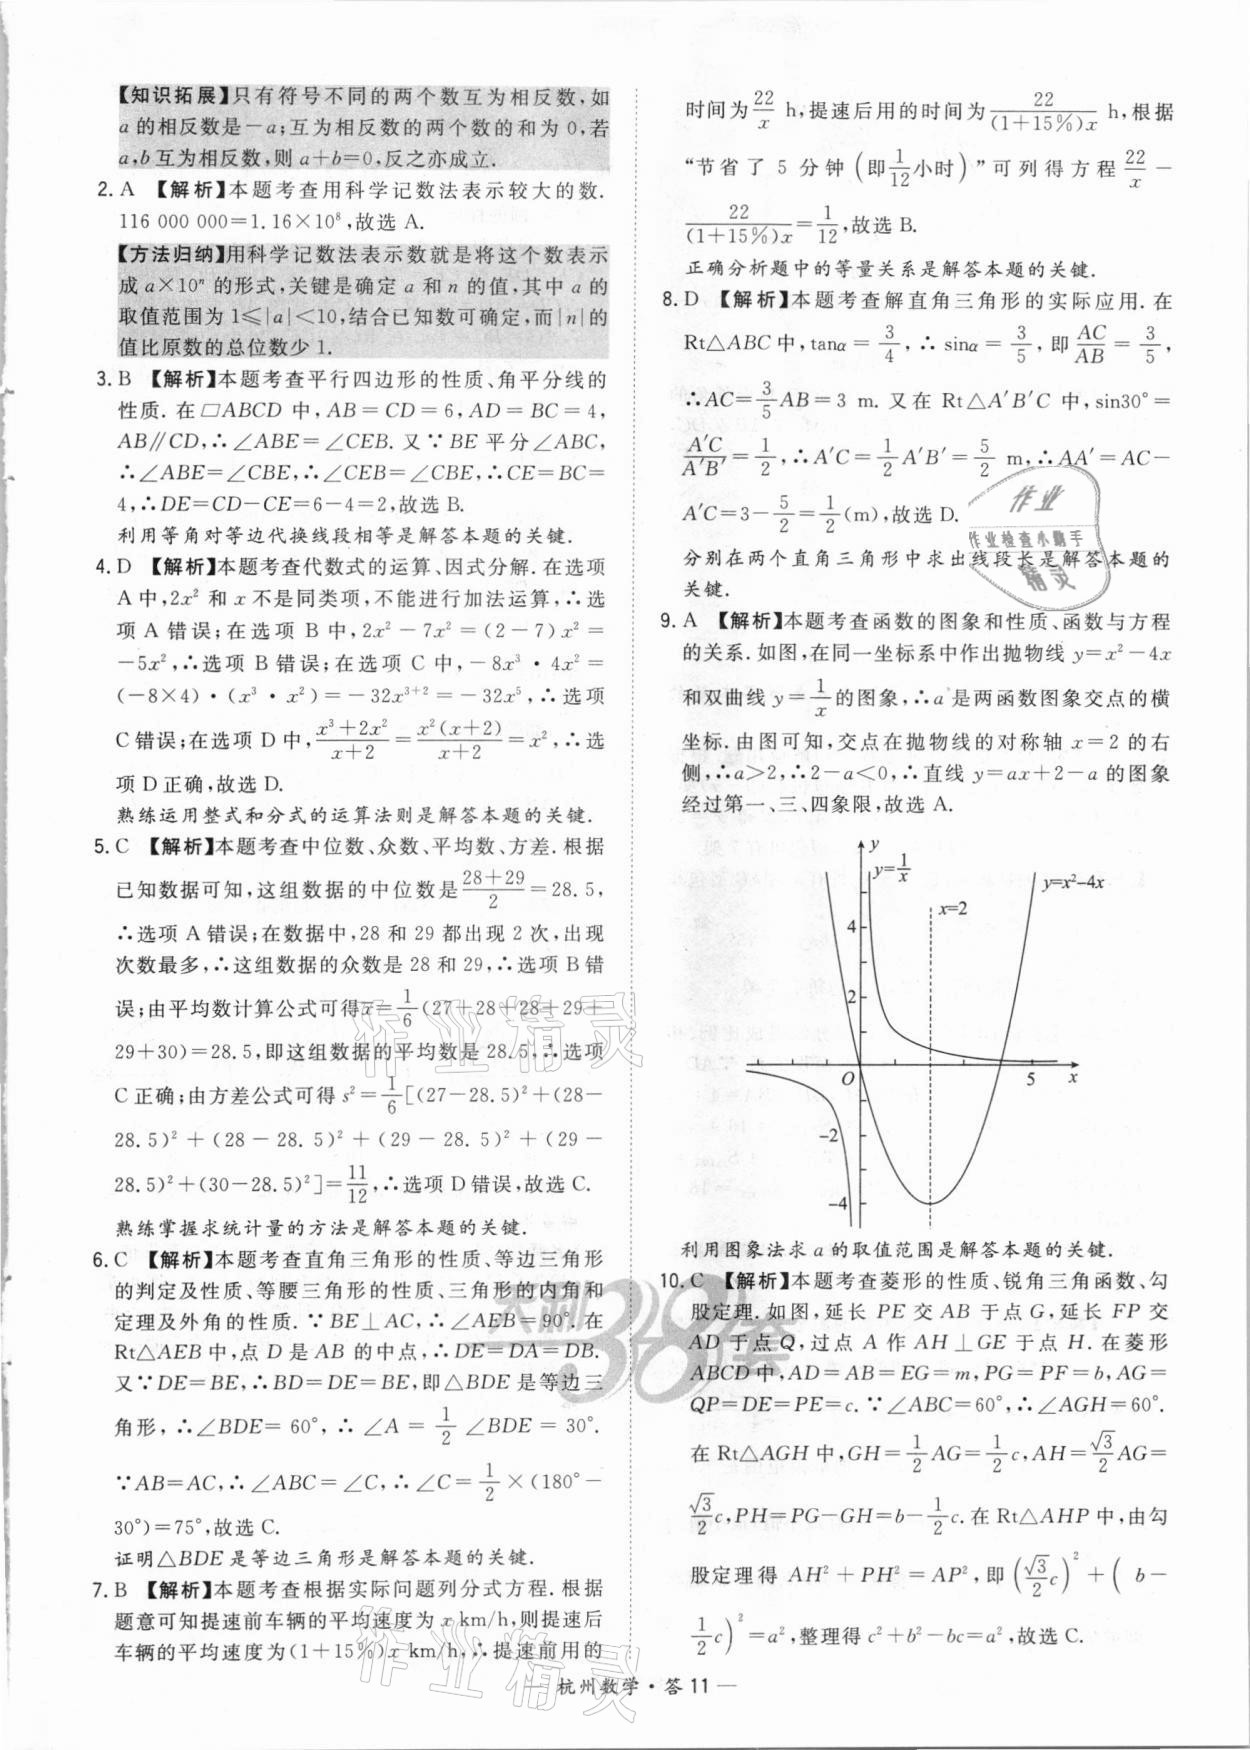 【知识拓展】只有符号不同的两个数互为相反数,如
a 的相反数是－a;互为相反数的两个数的和为 0,若
a,b 互为相反数,则 a＋b=0,反之亦成立.
2. A 【解析】本题考查用科学记数法表示较大的数.
116 000 000=1.16×10⁸,故选 A.
【方法归纳】用科学记数法表示数就是将这个数表示
成 a×10ⁿ 的形式,关键是确定 a 和 n 的值,其中 a 的
取值范围为 1≤|a|<10,结合已知数可确定,而|n|的
值比原数的总位数少 1.
3. B 【解析】本题考查平行四边形的性质、角平分线的
性质. 在▱ABCD 中,AB=CD=6,AD=BC=4,
AB∥CD,∴∠ABE=∠CEB. 又∵BE 平分∠ABC,
∴∠ABE=∠CBE,∴∠CEB=∠CBE,∴CE=BC=
4,∴DE=CD－CE=6－4=2,故选 B.
利用等角对等边代换线段相等是解答本题的关键.
4. D 【解析】本题考查代数式的运算、因式分解. 在选项
A 中,2x² 和 x 不是同类项,不能进行加法运算,∴选
项 A 错误;在选项 B 中,2x²－7x²=(2－7)x²=
－5x²,∴选项 B 错误;在选项 C 中,－8x³·4x²=
(－8×4)·(x³·x²)=－32x³⁺²=－32x⁵,∴选项
C 错误;在选项 D 中,(x³＋2x²)/(x＋2)=x²(x＋2)/(x＋2)=x²,∴选
项 D 正确,故选 D.
熟练运用整式和分式的运算法则是解答本题的关键.
5. C 【解析】本题考查中位数、众数、平均数、方差. 根据
已知数据可知,这组数据的中位数是(28＋29)/2=28.5,
∴选项 A 错误;在数据中,28 和 29 都出现 2 次,出现
次数最多,∴这组数据的众数是 28 和 29,∴选项 B 错
误;由平均数计算公式可得x̄=1/6(27＋28＋28＋29＋
29＋30)=28.5,即这组数据的平均数是 28.5,∴选项
C 正确;由方差公式可得 s²=1/6[(27－28.5)²＋(28－
28.5)²＋(28－28.5)²＋(29－28.5)²＋(29－
28.5)²＋(30－28.5)²]=11/12,∴选项 D 错误,故选 C.
熟练掌握求统计量的方法是解答本题的关键.
6. C 【解析】本题考查直角三角形的性质、等边三角形
的判定及性质、等腰三角形的性质、三角形的内角和
定理及外角的性质. ∵BE⊥AC,∴∠AEB=90°. 在
Rt△AEB 中,点 D 是 AB 的中点,∴DE=DA=DB.
又∵DE=BE,∴BD=DE=BE,即△BDE 是等边三
角形,∴∠BDE=60°,∴∠A=1/2∠BDE=30°.
∵AB=AC,∴∠ABC=∠C,∴∠C=1/2×(180°－
30°)=75°,故选 C.
证明△BDE 是等边三角形是解答本题的关键.
7. B 【解析】本题考查根据实际问题列分式方程. 根据
题意可知提速前车辆的平均速度为 x km/h,则提速后
车辆的平均速度为(1＋15%)x km/h,∴提速前用的
时间为22/x h,提速后用的时间为22/((1＋15%)x) h,根据
“节省了 5 分钟(即1/12小时)”可列得方程22/x－
22/((1＋15%)x)=1/12,故选 B.
正确分析题中的等量关系是解答本题的关键.
8. D 【解析】本题考查解直角三角形的实际应用. 在
Rt△ABC 中,tanα=3/4,∴sinα=3/5,即AC/AB=3/5,
∴AC=3/5AB=3 m. 又在 Rt△A′B′C 中,sin30°=
A′C/A′B′=1/2,∴A′C=1/2A′B′=5/2 m,∴AA′=AC－
A′C=3－5/2=1/2(m),故选 D.
分别在两个直角三角形中求出线段长是解答本题的
关键.
9. A 【解析】本题考查函数的图象和性质、函数与方程
的关系. 如图,在同一坐标系中作出抛物线 y=x²－4x
和双曲线 y=1/x的图象,∴a 是两函数图象交点的横
坐标. 由图可知,交点在抛物线的对称轴 x=2 的右
侧,∴a>2,∴2－a<0,∴直线 y=ax＋2－a 的图象
经过第一、三、四象限,故选 A.
y
y=1/x
y=x²-4x
x=2
4
2
O
5
x
-2
-4
利用图象法求 a 的取值范围是解答本题的关键.
10. C 【解析】本题考查菱形的性质、锐角三角函数、勾
股定理. 如图,延长 PE 交 AB 于点 G,延长 FP 交
AD 于点 Q,过点 A 作 AH⊥GE 于点 H. 在菱形
ABCD 中,AD=AB=EG=m,PG=PF=b,AG=
QP=DE=PE=c. ∵∠ABC=60°,∴∠AGH=60°.
在 Rt△AGH 中,GH=1/2AG=1/2c,AH=√3/2AG=
√3/2c,PH=PG－GH=b－1/2c. 在 Rt△AHP 中,由勾
股定理得 AH²＋PH²=AP²,即(√3/2c)²＋(b－
1/2c)²=a²,整理得 c²＋b²－bc=a²,故选 C.
作业
作业检查小助手
精灵
作业精灵
天利38套
作业精灵
杭州数学·答 11 —